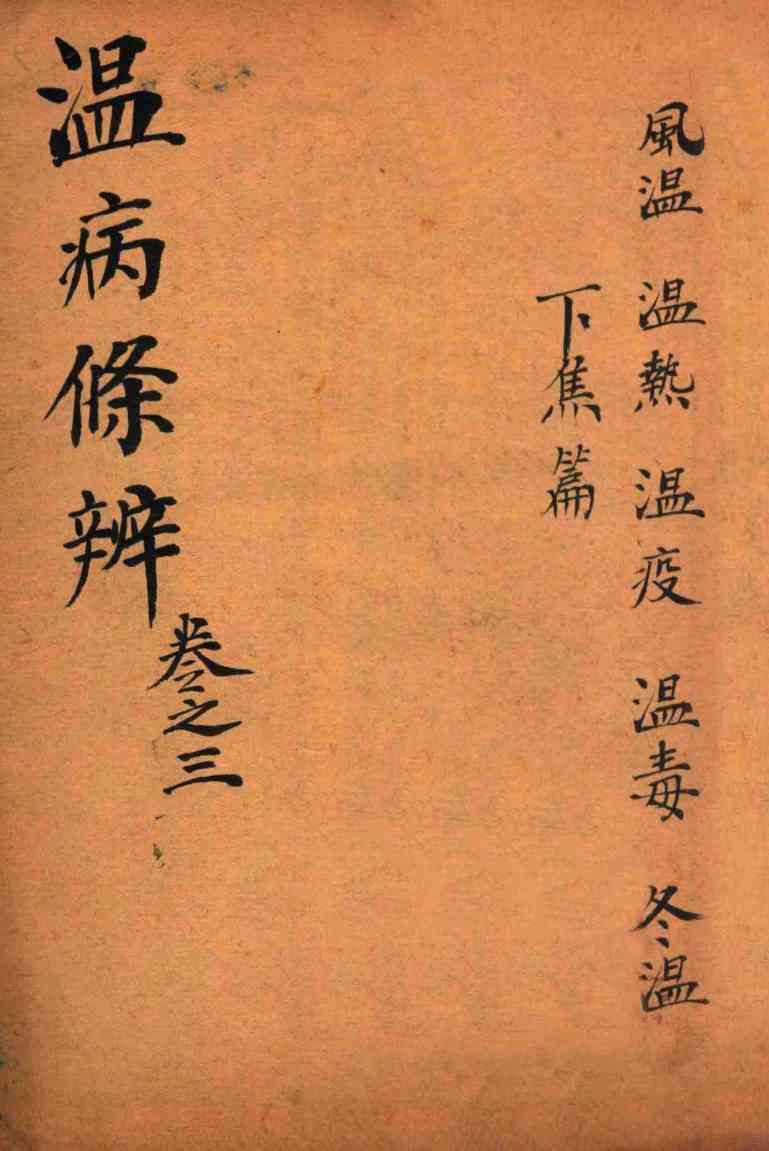 風温 温熱 温疫 温毒 冬温
下焦篇
温病條辨
卷之三